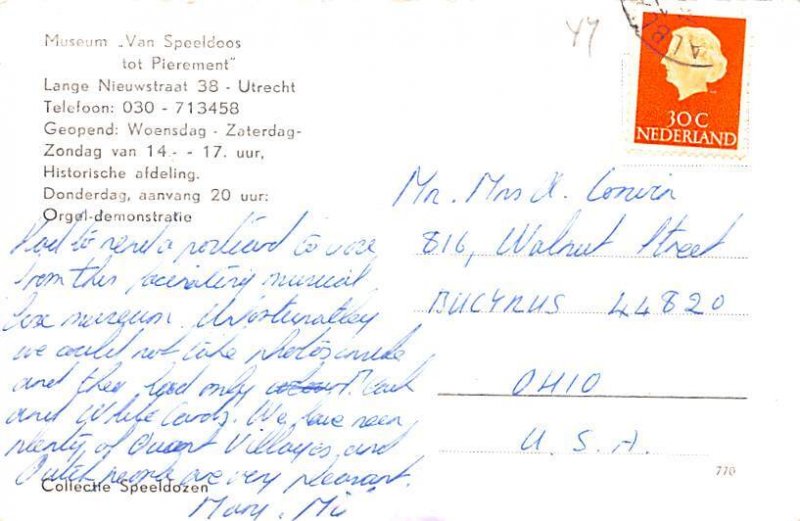 Museum „Van Speeldoos
tot Pierement"
Lange Nieuwstraat 38 - Utrecht
Telefoon: 030 - 713458
Geopend: Woensdag - Zaterdag-
Zondag van 14.- - 17. uur,
Historische afdeling.
Donderdag, aanvang 20 uur:
Orgel-demonstratie
Had to send a postcard to
from this facinating musical
box museum. Unfortunatley
we could not take photos inside
and they had only Black
and White Cards. We have seen
plenty of Quaint Villages and
Dutch people are very pleasant.
Mary.
Collectie Speeldozen
47
30 C
NEDERLAND
Mr. Mrs
816, Walnut Street
BUCYRUS 44820
OHIO
U.S.A.
770